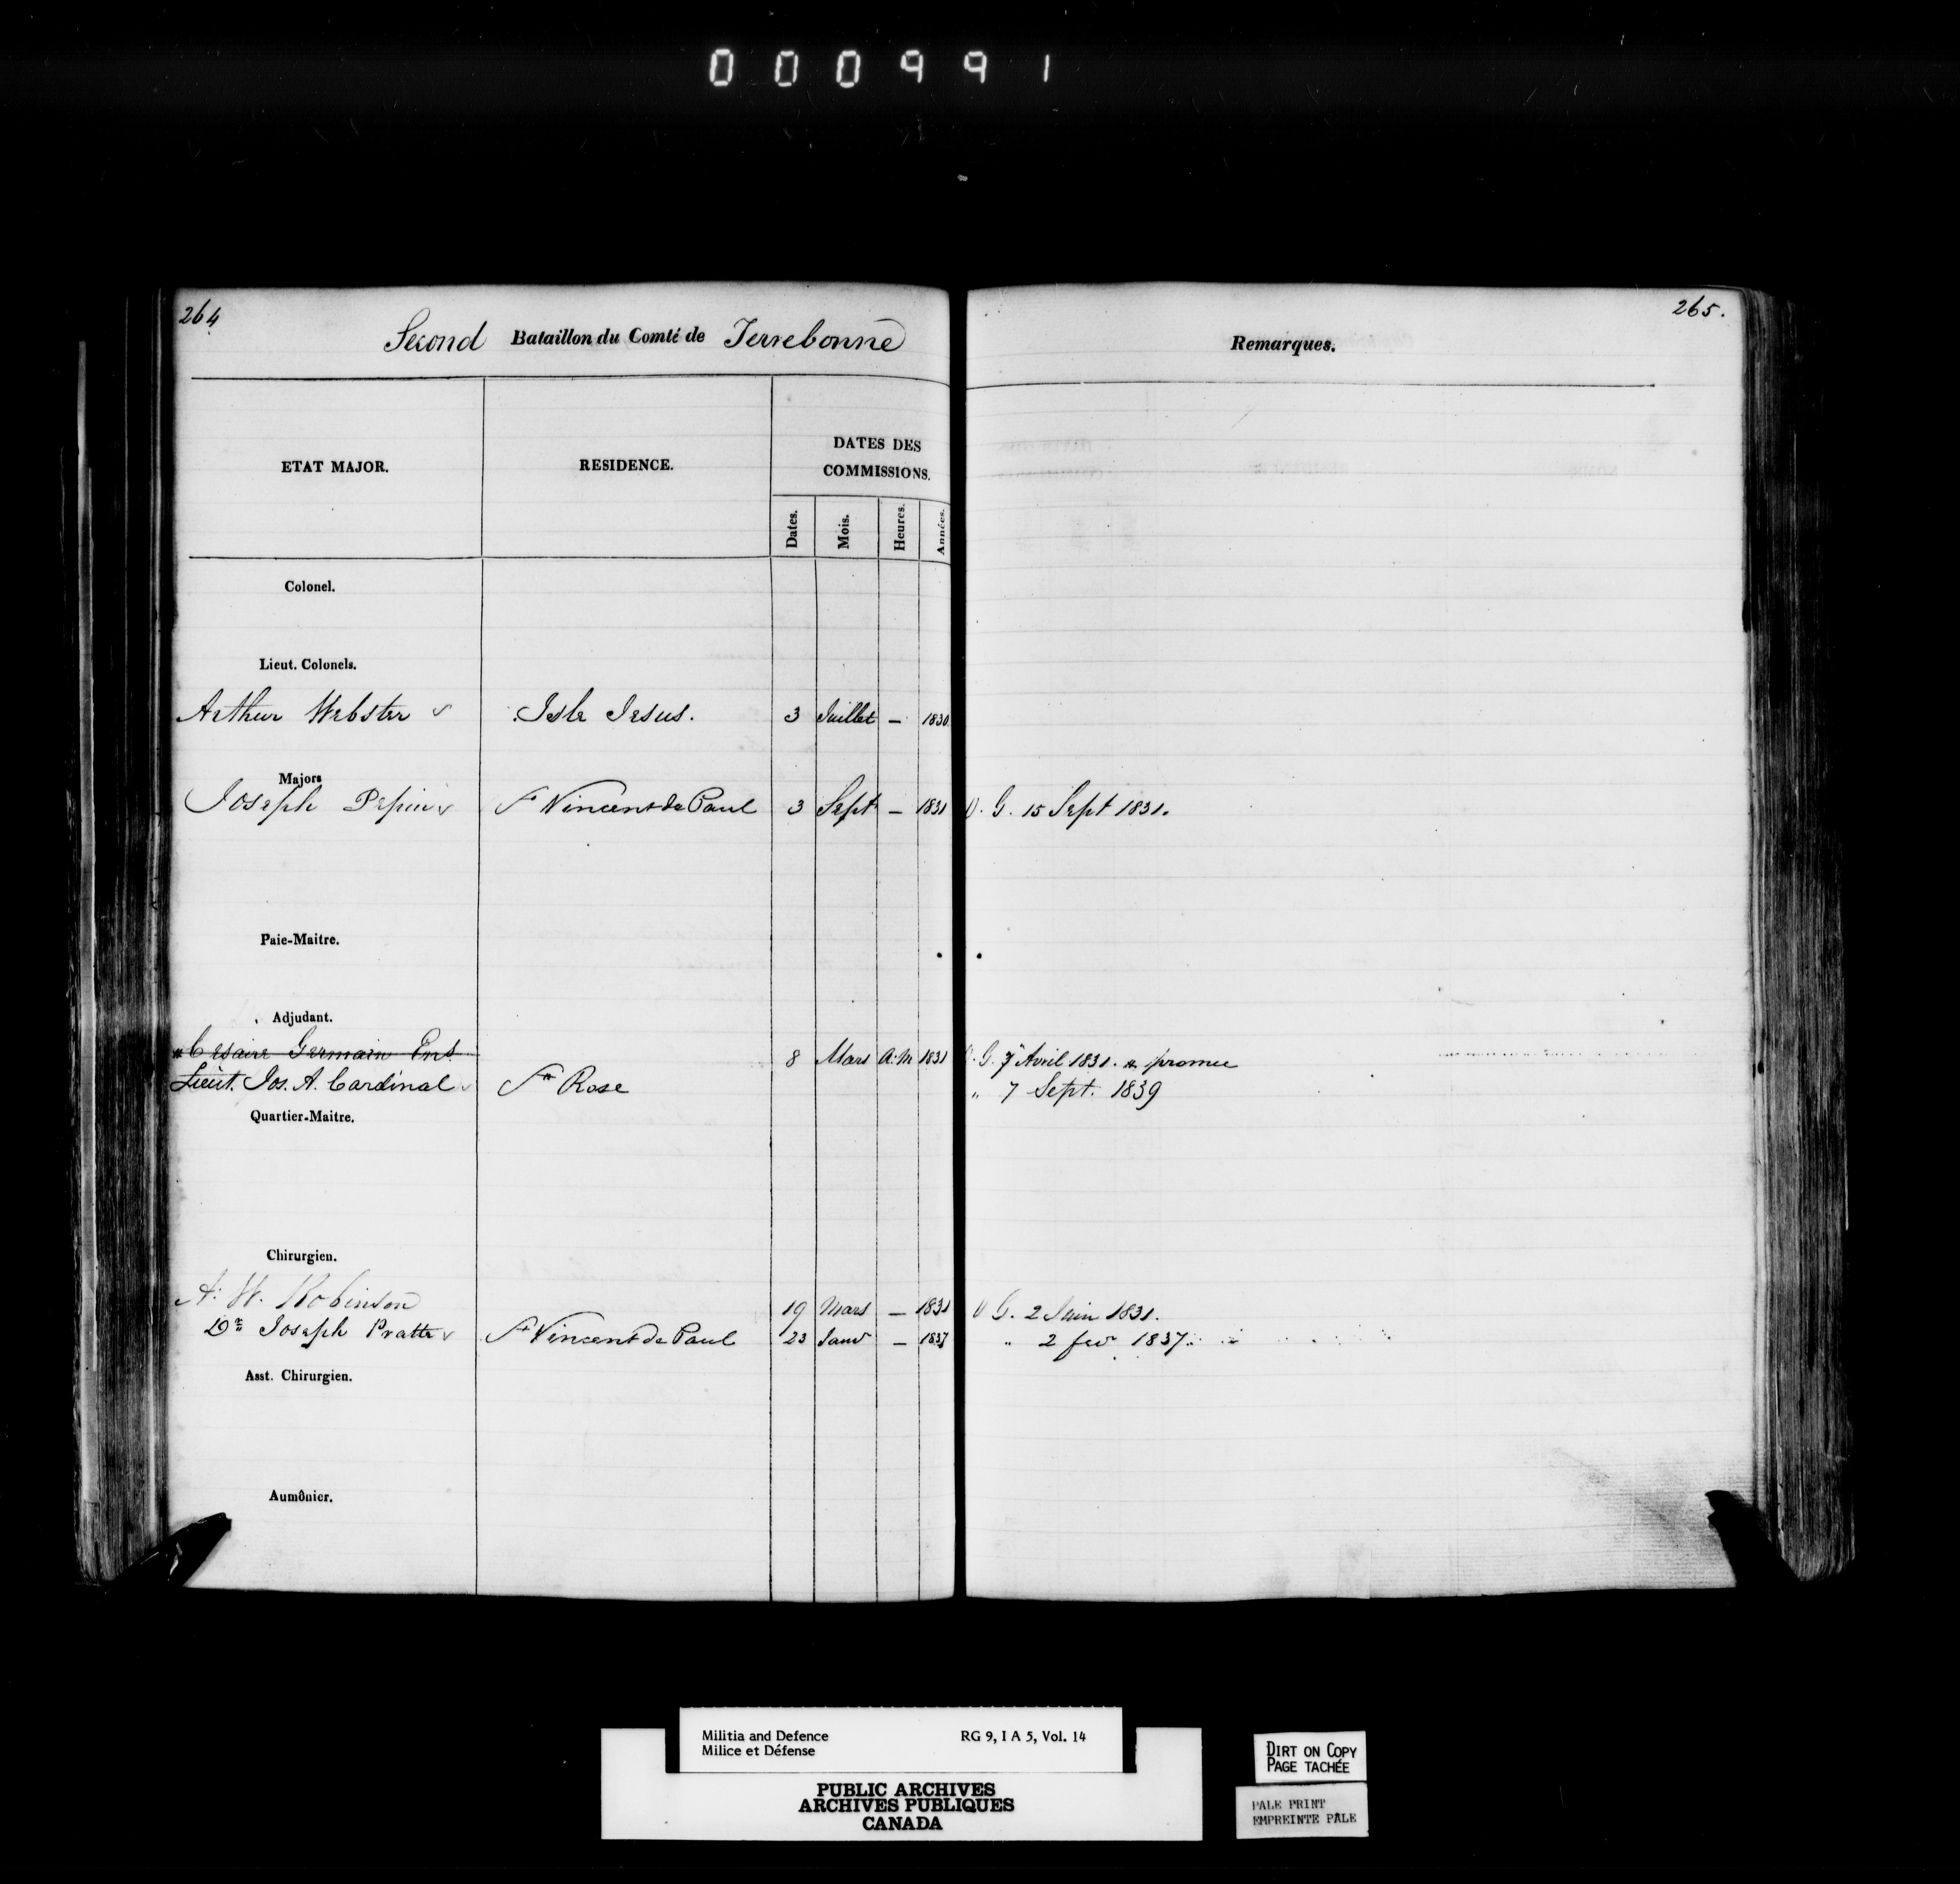 000991
264
Second Bataillon du Comté de Terrebonne
ETAT MAJOR.
RESIDENCE.
DATES DES
COMMISSIONS.
Dates. Mois. Heures. Années.
Colonel.
Lieut. Colonels.
Arthur Webster Isle Jesus. 3 Juillet — 1830
Majors
Joseph Pepin St Vincent de Paul 3 Sept — 1831
Paie-Maitre.
Adjudant.
Cesaire Germain Ens 8 Mars A.M 1831
Lieut. Jos. A. Cardinal Ste Rose
Quartier-Maitre.
Chirurgien.
A. W. Robinson 19 Mars — 1831
Dr Joseph Pratte St Vincent de Paul 23 Janv — 1837
Asst. Chirurgien.
Aumônier.
265.
Remarques.
O. G. 15 Sept 1831.
O. G. 7 Avril 1831. promu
" 7 Sept. 1839
O G. 2 Juin 1831.
" 2 fev 1837.
Militia and Defence RG 9, I A 5, Vol. 14
Milice et Défense
PUBLIC ARCHIVES
ARCHIVES PUBLIQUES
CANADA
DIRT ON COPY
PAGE TACHÉE
PALE PRINT
EMPREINTE PÂLE